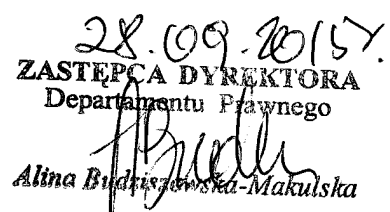 28.09.2015r.
ZASTĘPCA DYREKTORA
Departamentu Prawnego
Alina Budziszewska-Makulska